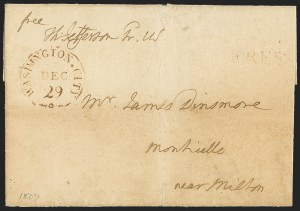 free
Th Jefferson Pr. US
FREE
WASHINGTON. CITY
DEC
29
Mr. James Dinsmore
Monticello
near Milton